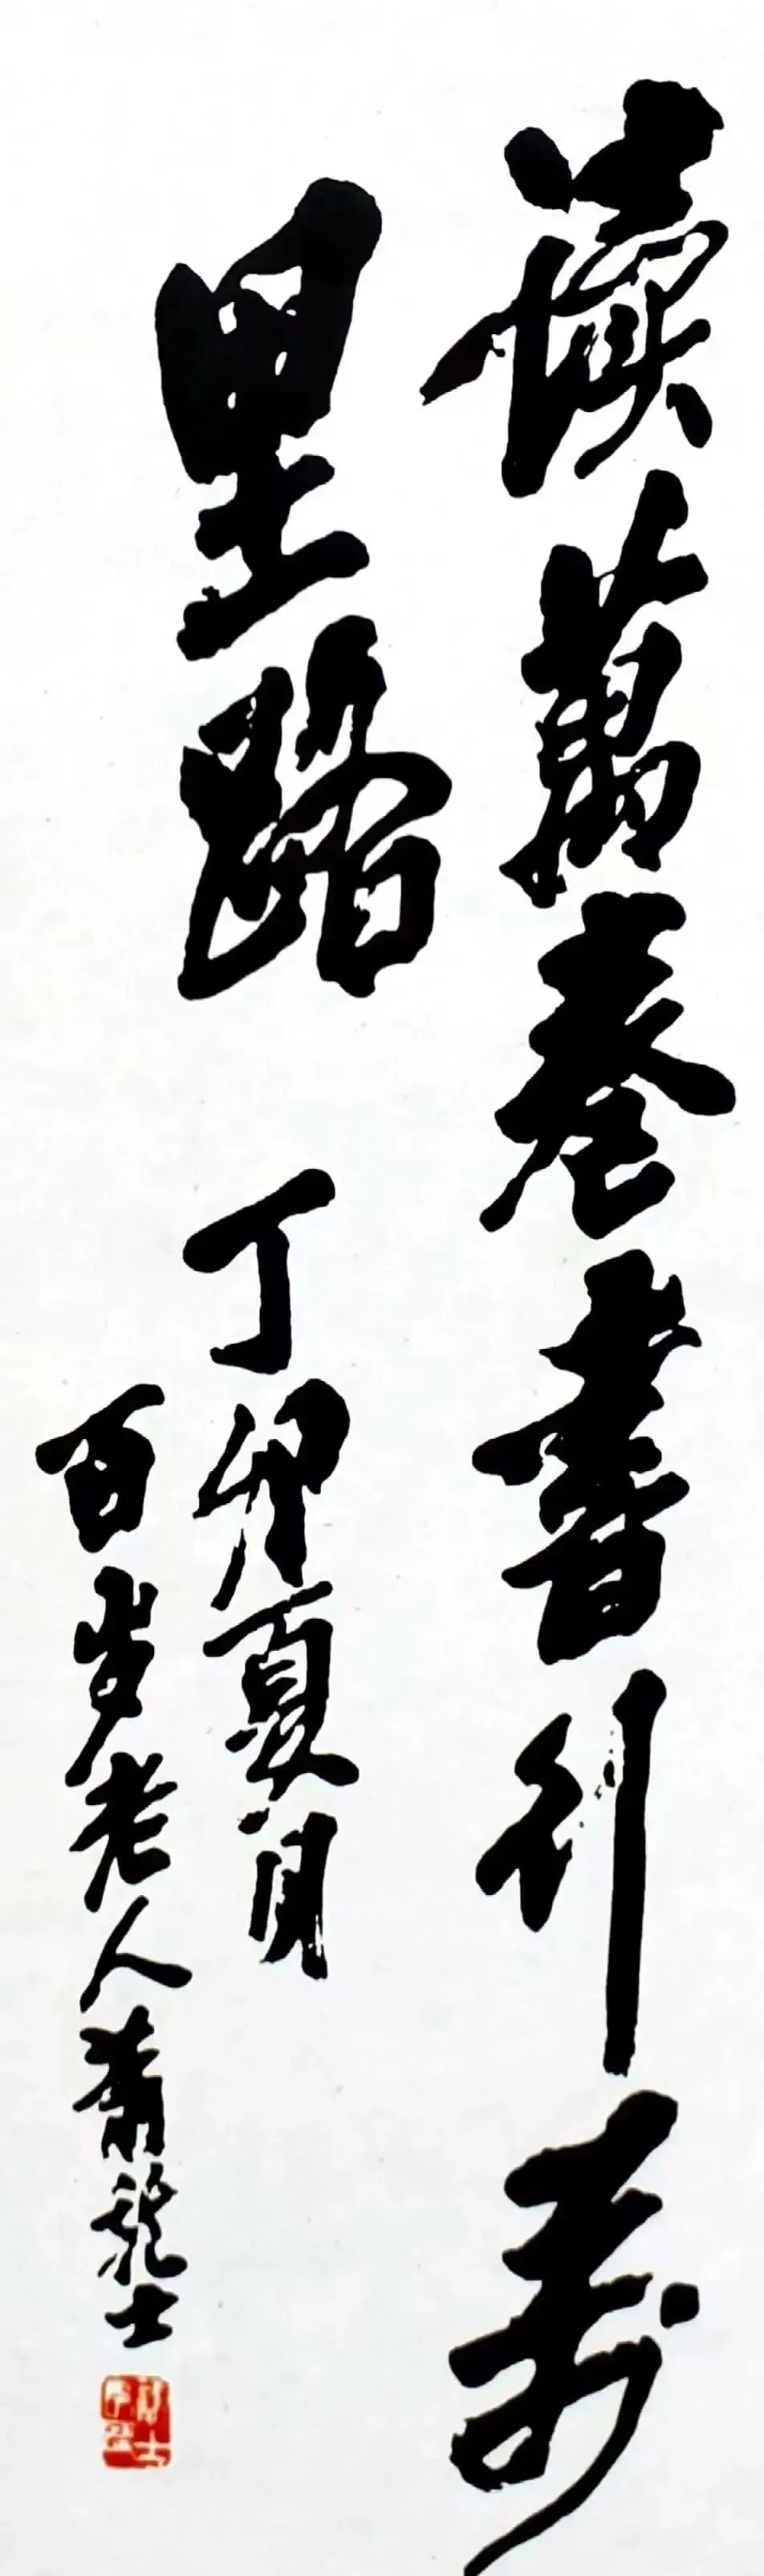 讀萬卷書行萬
里路
丁卯夏月
百岁老人蕭龍士